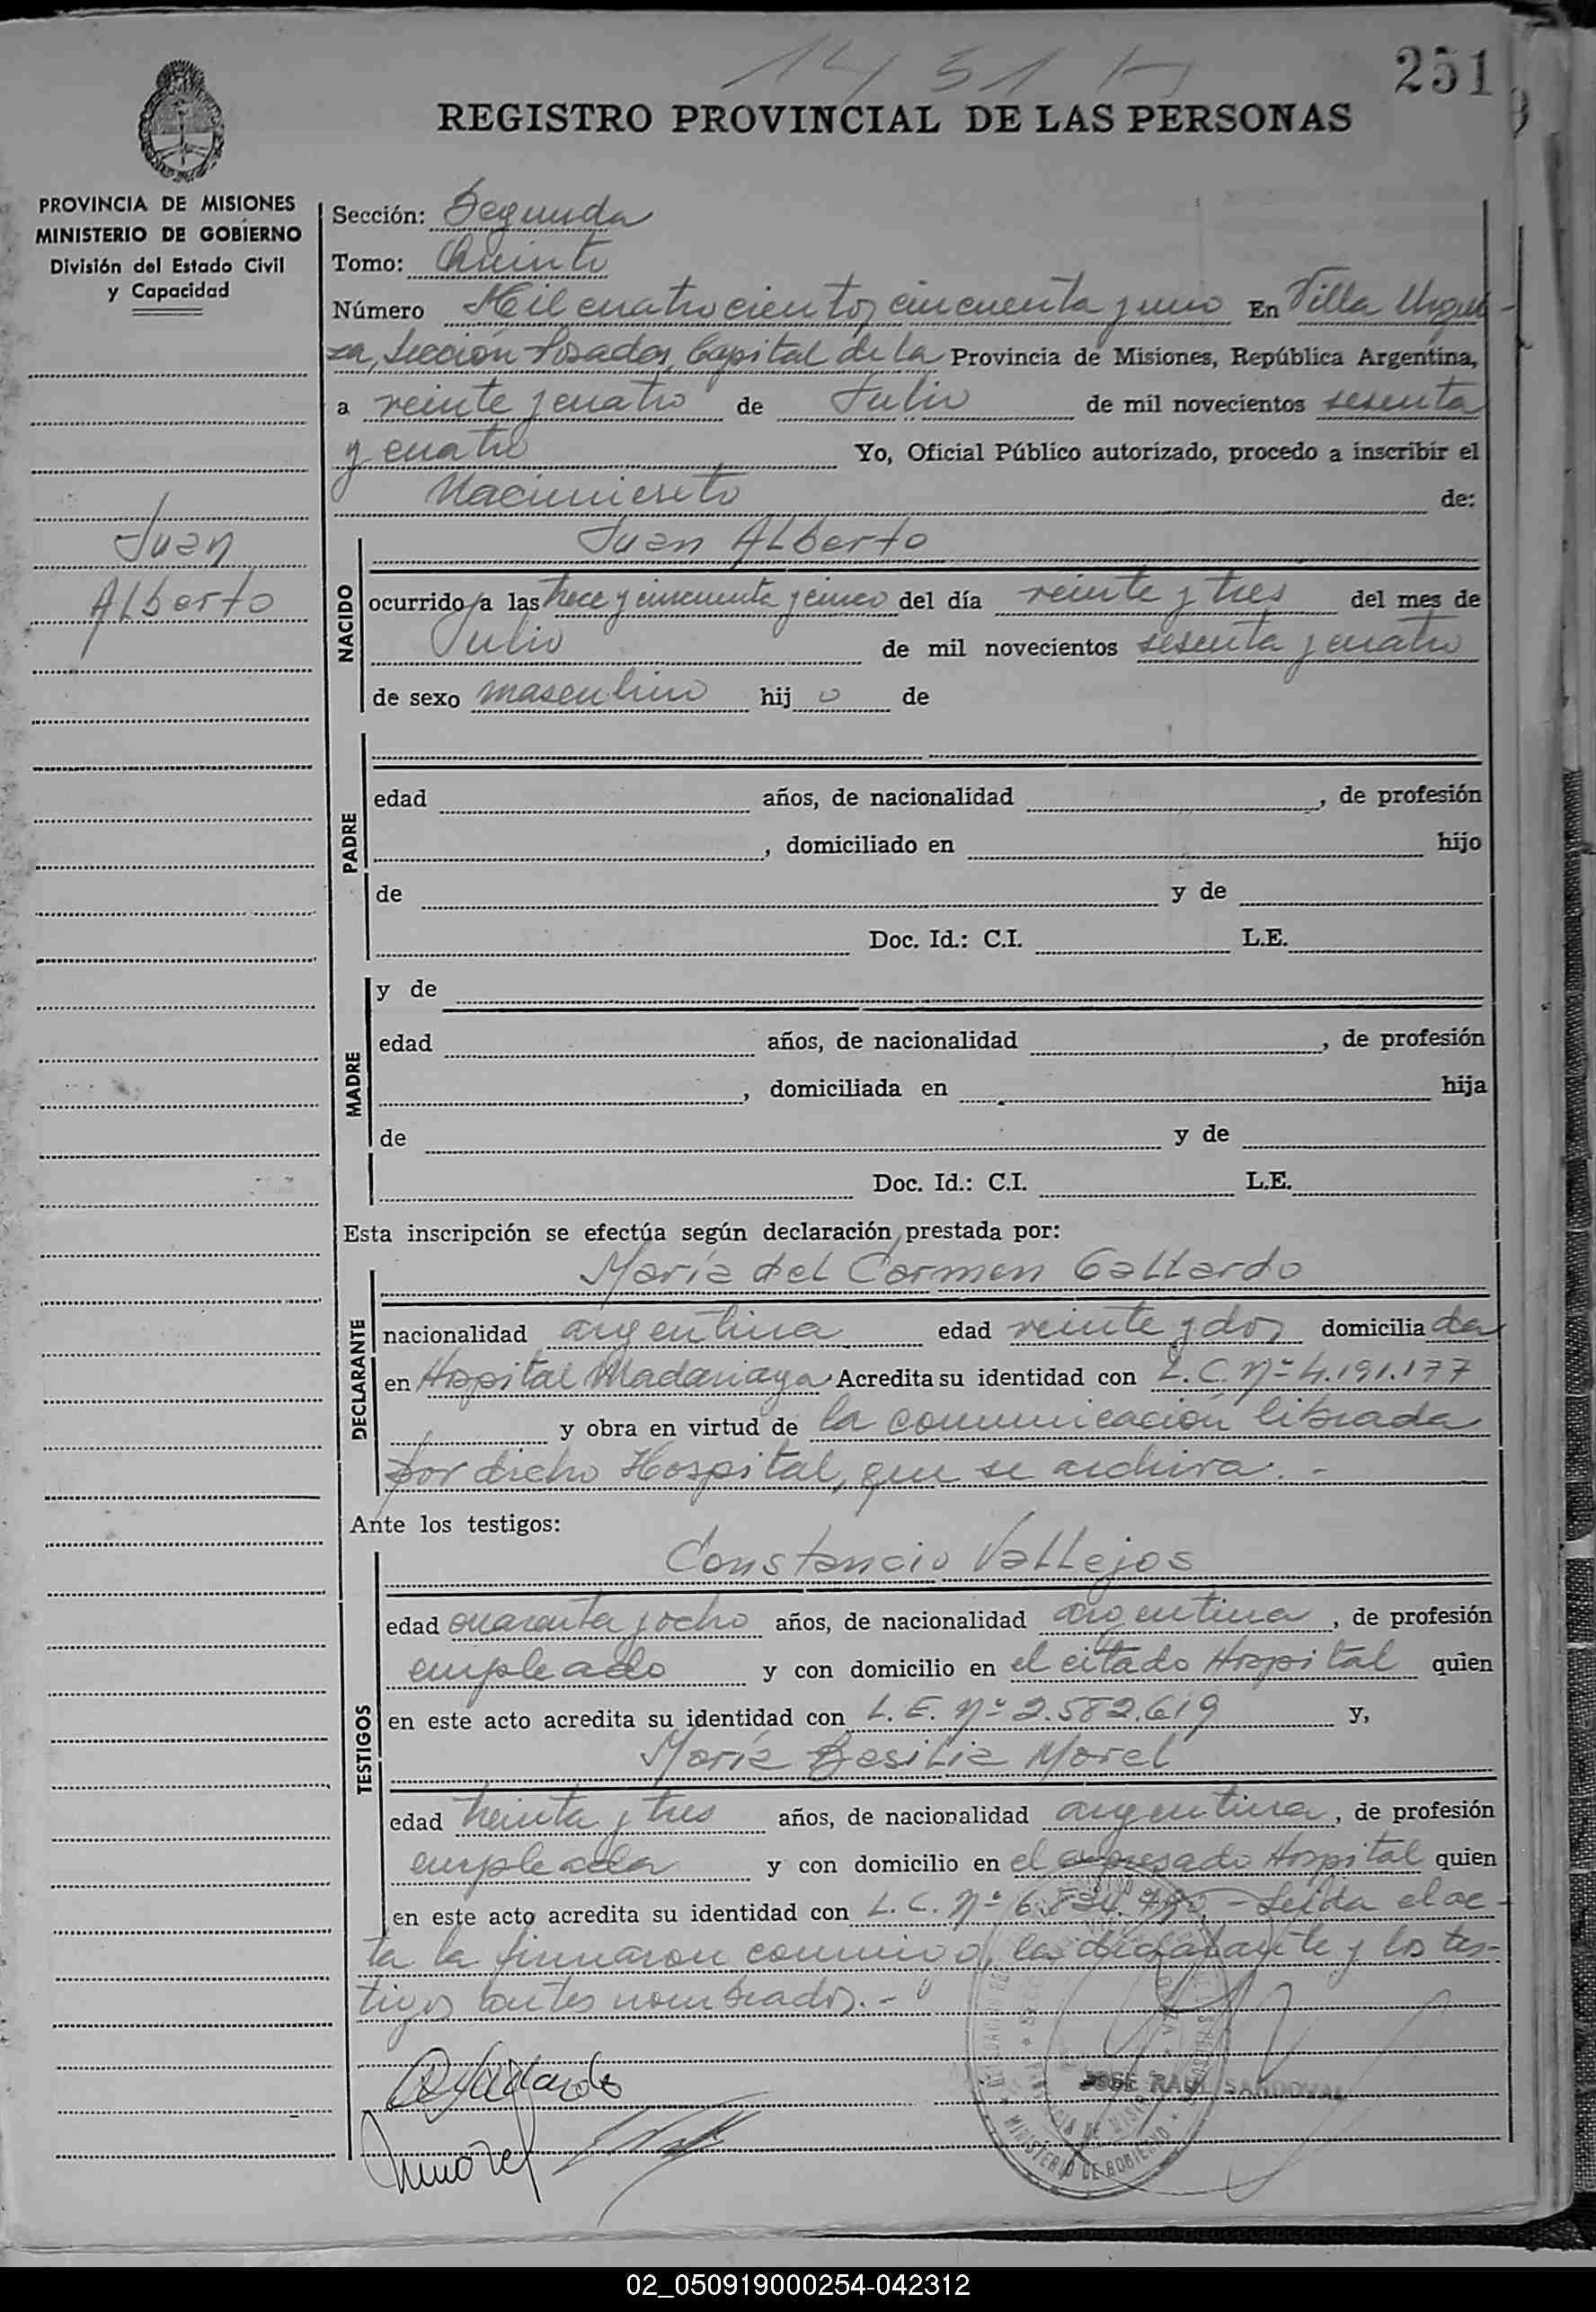 1451
251
REGISTRO PROVINCIAL DE LAS PERSONAS
PROVINCIA DE MISIONES
MINISTERIO DE GOBIERNO
División del Estado Civil
y Capacidad
Sección: Segunda
Tomo: Quinto
Número Mil cuatrocientos cincuenta y uno En Villa Urqui-
za, Sección Posadas, Capital de la Provincia de Misiones, República Argentina,
a veinte y cuatro de Julio de mil novecientos sesenta
y cuatro Yo, Oficial Público autorizado, procedo a inscribir el
Nacimiento de:
Juan
Alberto
NACIDO
Juan Alberto
ocurrido a las trece y cincuenta y cinco del día veinte y tres del mes de
Julio de mil novecientos sesenta y cuatro
de sexo masculino hijo de
PADRE
edad años, de nacionalidad , de profesión
, domiciliado en hijo
de y de
Doc. Id.: C.I. L.E.
MADRE
y de
edad años, de nacionalidad , de profesión
, domiciliada en hija
de y de
Doc. Id.: C.I. L.E.
Esta inscripción se efectúa según declaración prestada por:
DECLARANTE
María del Carmen Gallardo
nacionalidad argentina edad veinte y dos domiciliada
en Hospital Madariaga Acredita su identidad con L.C. Nº 4.191.177
y obra en virtud de la comunicación librada
por dicho Hospital, que se archiva.-
Ante los testigos:
TESTIGOS
Constancio Vallejos
edad cuarenta y ocho años, de nacionalidad argentina, de profesión
empleado y con domicilio en el citado Hospital quien
en este acto acredita su identidad con L.E. Nº 2.582.619 y,
María Basilia Morel
edad treinta y tres años, de nacionalidad argentina, de profesión
empleada y con domicilio en el expresado Hospital quien
en este acto acredita su identidad con L.C. Nº - Leída el ac-
ta la firmaron conmigo, la declarante y los tes-
tigos antes nombrados.-
JOSE RAUL SANDOVAL
MINISTERIO DE GOBIERNO
02_050919000254-042312